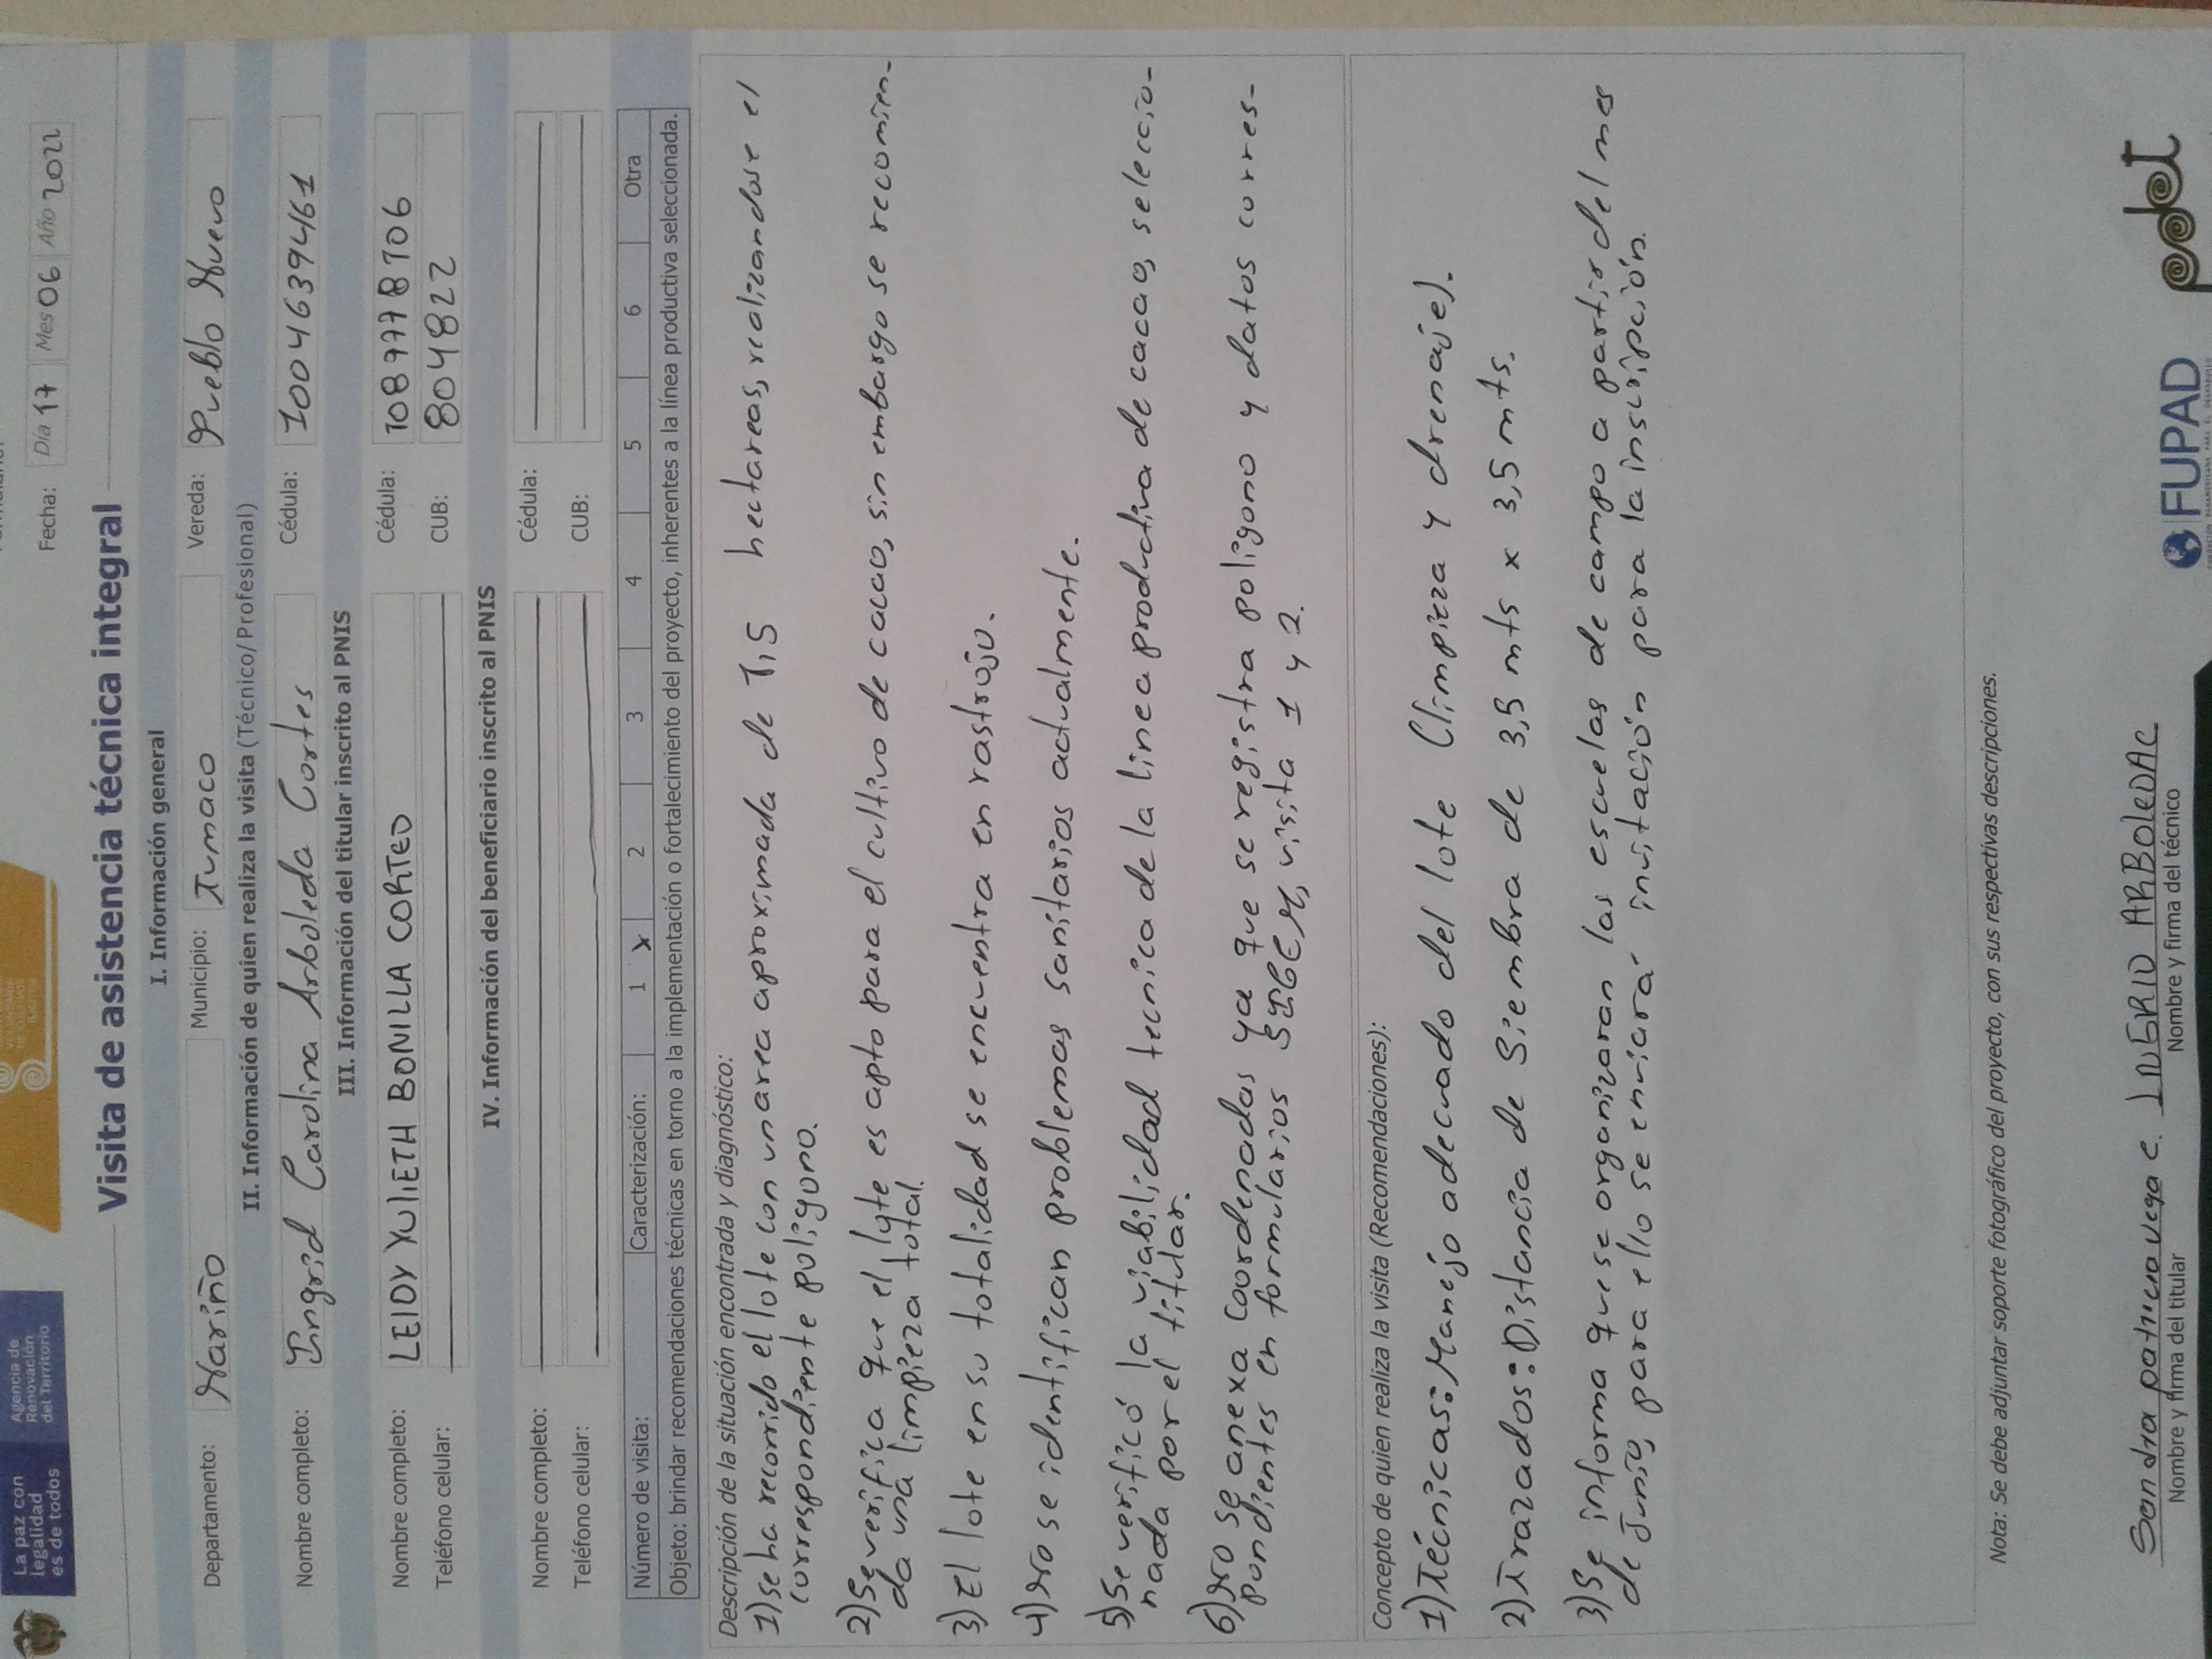 La paz con
legalidad
es de todos
Agencia de
Renovación
del Territorio
Fecha: Día 17 Mes 06 Año 2021
Visita de asistencia técnica integral
I. Información general
Departamento: Nariño Municipio: Tumaco Vereda: Pueblo Nuevo
II. Información de quien realiza la visita (Técnico/ Profesional)
Nombre completo: Ingrid Carolina Arboleda Cortes Cédula: 1004639461
III. Información del titular inscrito al PNIS
Nombre completo: LEIDY YULIETH BONILLA CORTEO Cédula: 1087778706
Teléfono celular: CUB: 804822
IV. Información del beneficiario inscrito al PNIS
Nombre completo: Cédula:
Teléfono celular: CUB:
Número de visita: Caracterización: 1 X 2 3 4 5 6 Otra
Objeto: brindar recomendaciones técnicas en torno a la implementación o fortalecimiento del proyecto, inherentes a la línea productiva seleccionada.
Descripción de la situación encontrada y diagnóstico:
1) se ha recorrido el lote con un area aproximada de 1,5 hectareas, realizandose el
correspondiente poligono.
2) Se verifica que el lote es apto para el cultivo de cacao, sin embargo se recomien-
da una limpieza total.
3) El lote en su totalidad se encuentra en rastrojo.
4) No se identifican problemas sanitarios actualmente.
5) Se verificó la viabilidad tecnica de la linea productiva de cacao, seleccio-
nada por el titular.
6) No se anexa coordenadas ya que se registra poligono y datos corres-
pondientes en formularios visita 1 y 2.
Concepto de quien realiza la visita (Recomendaciones):
1) Técnicas: Manejo adecuado del lote (limpieza y drenaje).
2) Trazados: Distancia de Siembra de 3,5 mts x 3,5 mts.
3) Se informa que se organizaran las escuelas de campo a partir del mes
de Junio, para ello se enviará invitación para la inscripción.
Nota: Se debe adjuntar soporte fotográfico del proyecto, con sus respectivas descripciones.
Sandra patricia vega c. INGRID ARBOLEDA C
Nombre y firma del titular Nombre y firma del técnico
FUPAD
pdet